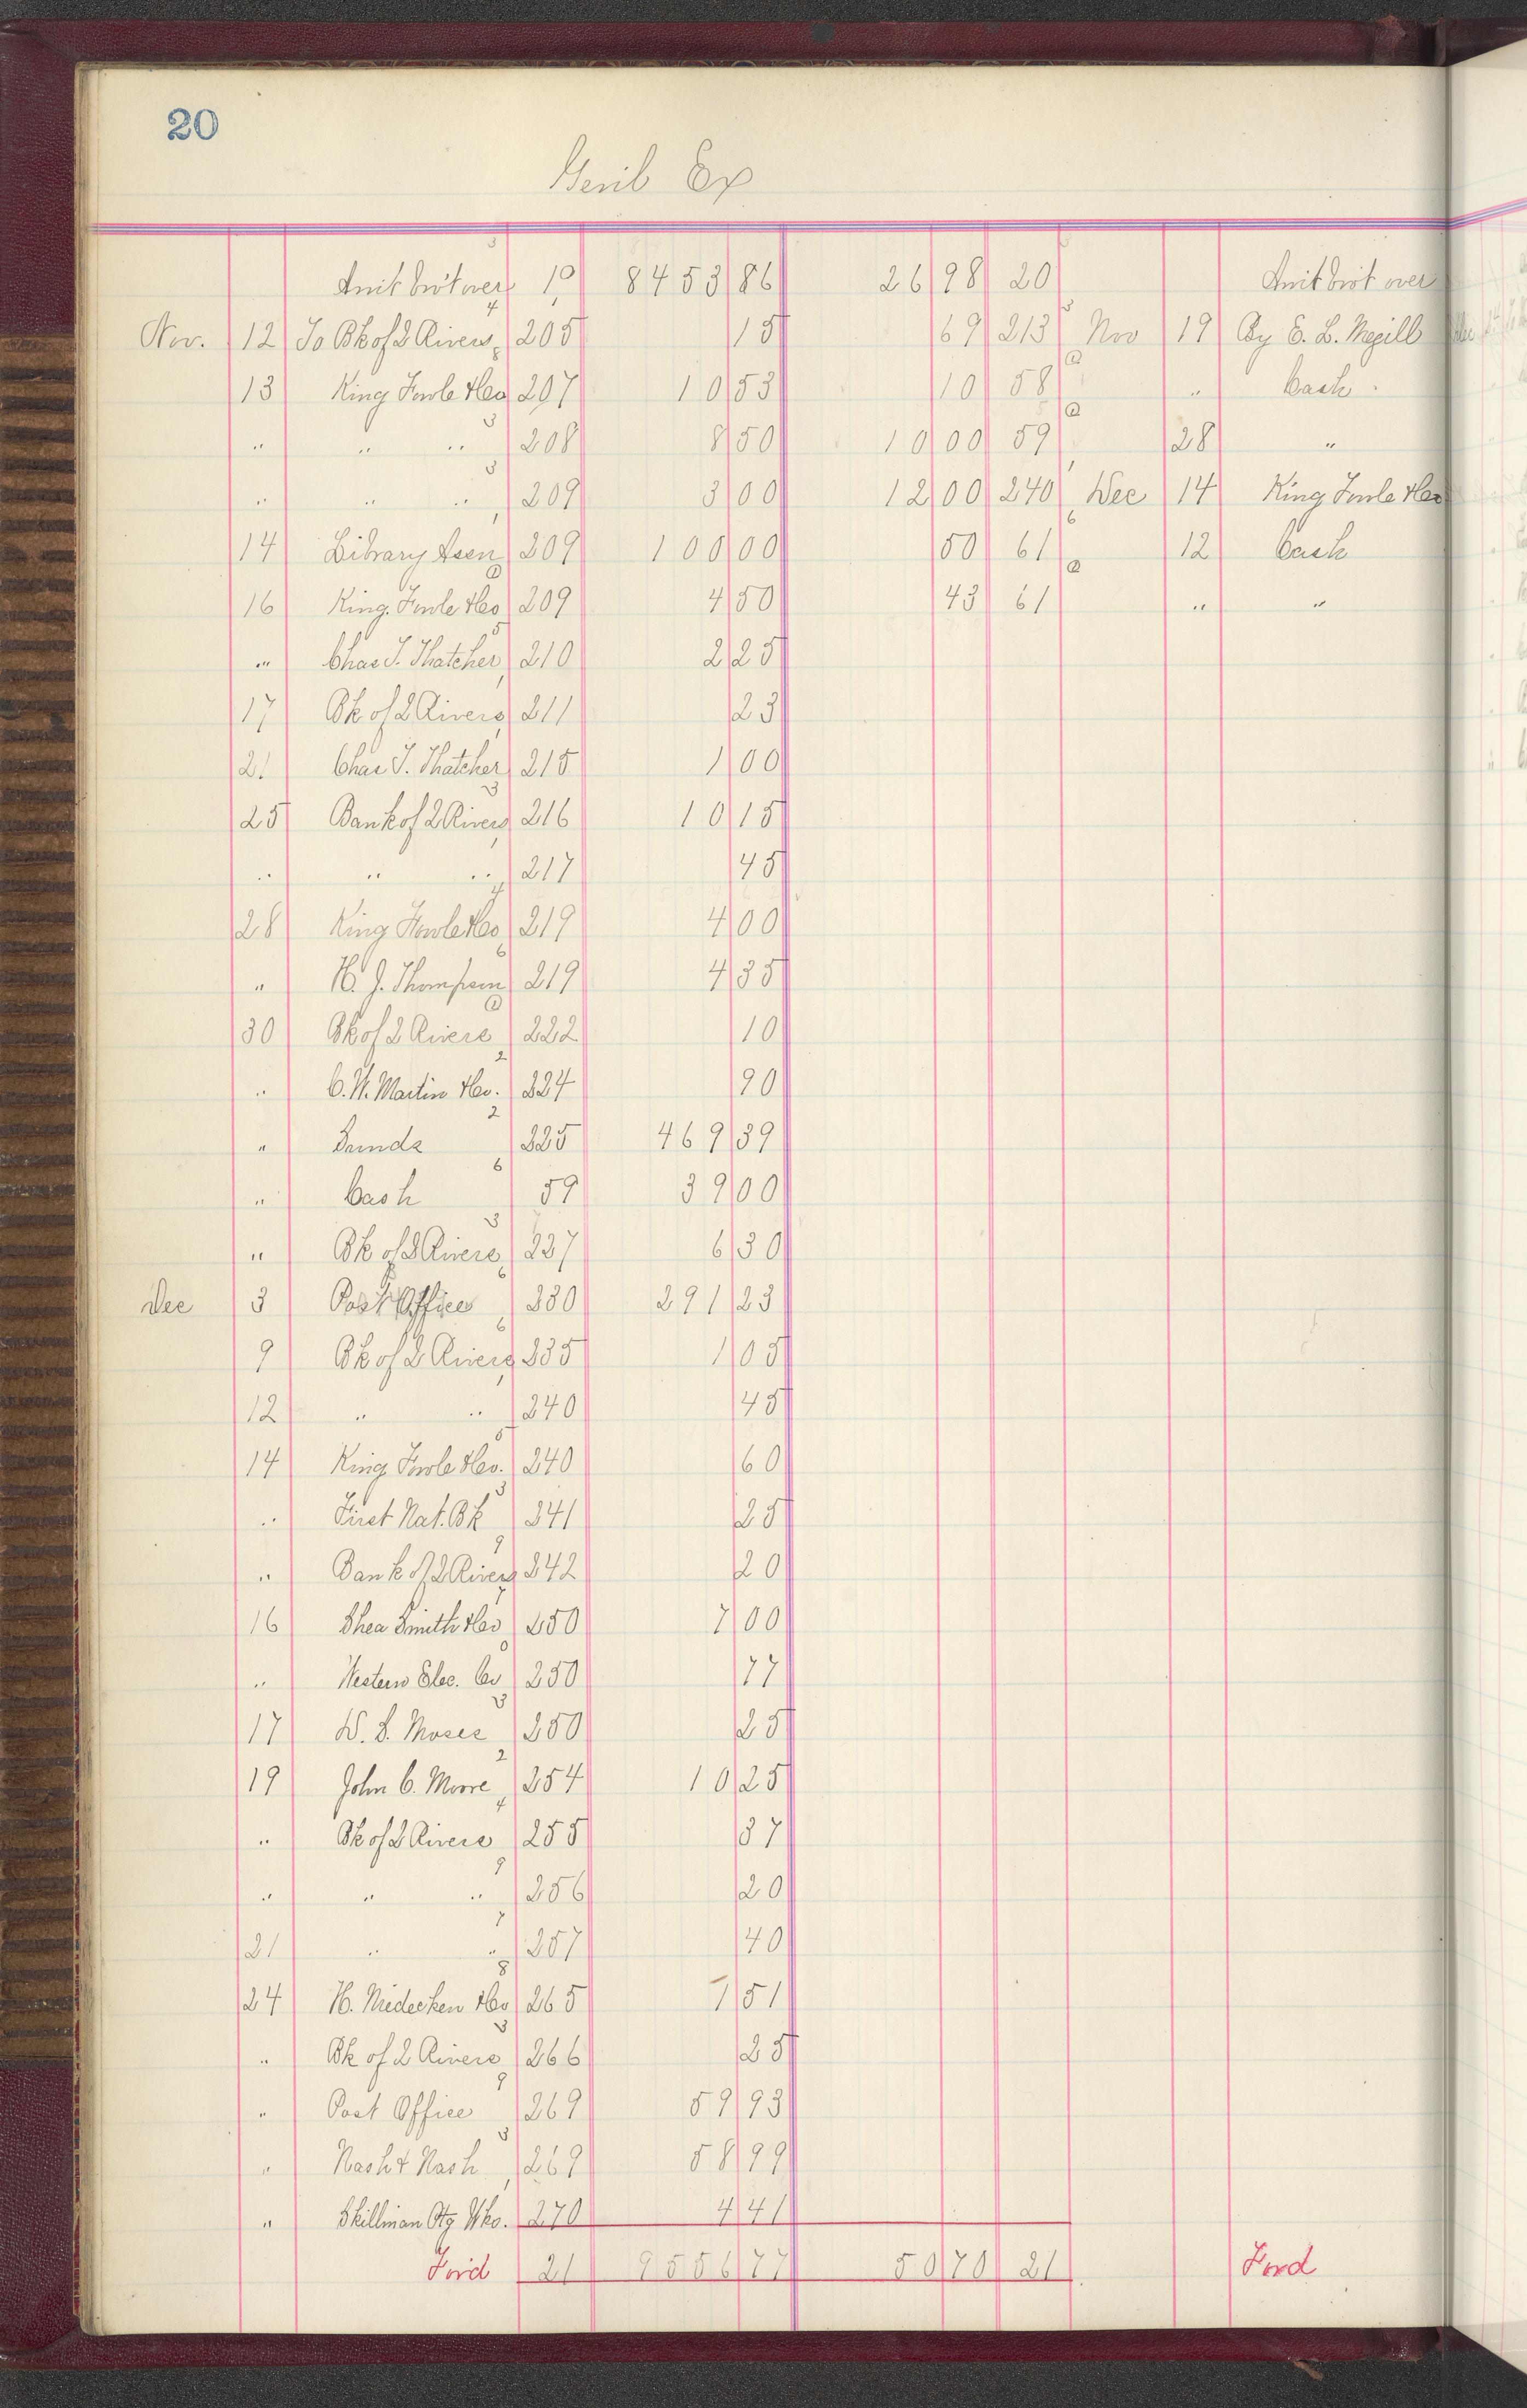 20
Genl Ex
Amt brot over 19 8453 86 26 98 20 Amt brot over
Nov. 12 To Bk of 2 Rivers 205 15 69 213 Nov 19 By E. L. Megill
13 King Fowle & Co 207 10 53 10 58 " Cash
" " " 208 8 50 10 00 59 28 "
" " " 209 3 00 12 00 240 Dec 14 King Fowle & Co
14 Library Assn 209 100 00 50 61 12 Cash
16 King Fowle & Co 209 4 50 43 61 " "
" Chas J. Thatcher 210 2 25
17 Bk of 2 Rivers 211 23
21 Chas J. Thatcher 215 1 00
25 Bank of 2 Rivers 216 10 15
" " " 217 45
28 King Fowle & Co 219 4 00
" H. J. Thompson 219 4 35
30 Bk of 2 Rivers 222 10
" C. W. Martin & Co. 224 90
" Sunds 225 469 39
" Cash 59 39 00
" Bk of 2 Rivers 227 6 30
Dec 3 Post Office 230 291 23
9 Bk of 2 Rivers 235 1 05
12 " " 240 45
14 King Fowle & Co. 240 60
" First Nat. Bk 241 25
" Bank of 2 Rivers 242 20
16 Shea Smith & Co 250 7 00
" Western Elec. Co 250 77
17 W. S. Moses 250 25
19 John C. Moore 254 10 25
" Bk of 2 Rivers 255 37
" " " 256 20
21 " " 257 40
24 H. Niedecken & Co 265 7 51
" Bk of 2 Rivers 266 25
" Post Office 269 59 93
" Nash & Nash 269 58 99
" Skillman Ptg Wks. 270 4 41
Ford 21 9556 77 50 70 21 Ford